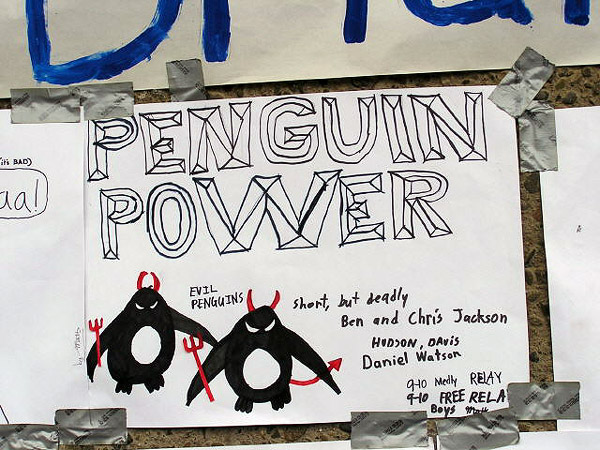 it's BAD)
aa!
PENGUIN
POWER
EVIL
PENGUINS
short, but deadly
Ben and Chris Jackson
HUDSON, DAVIS
Daniel Watson
9-10 Medly RELAY
9-10 FREE RELA
Boys